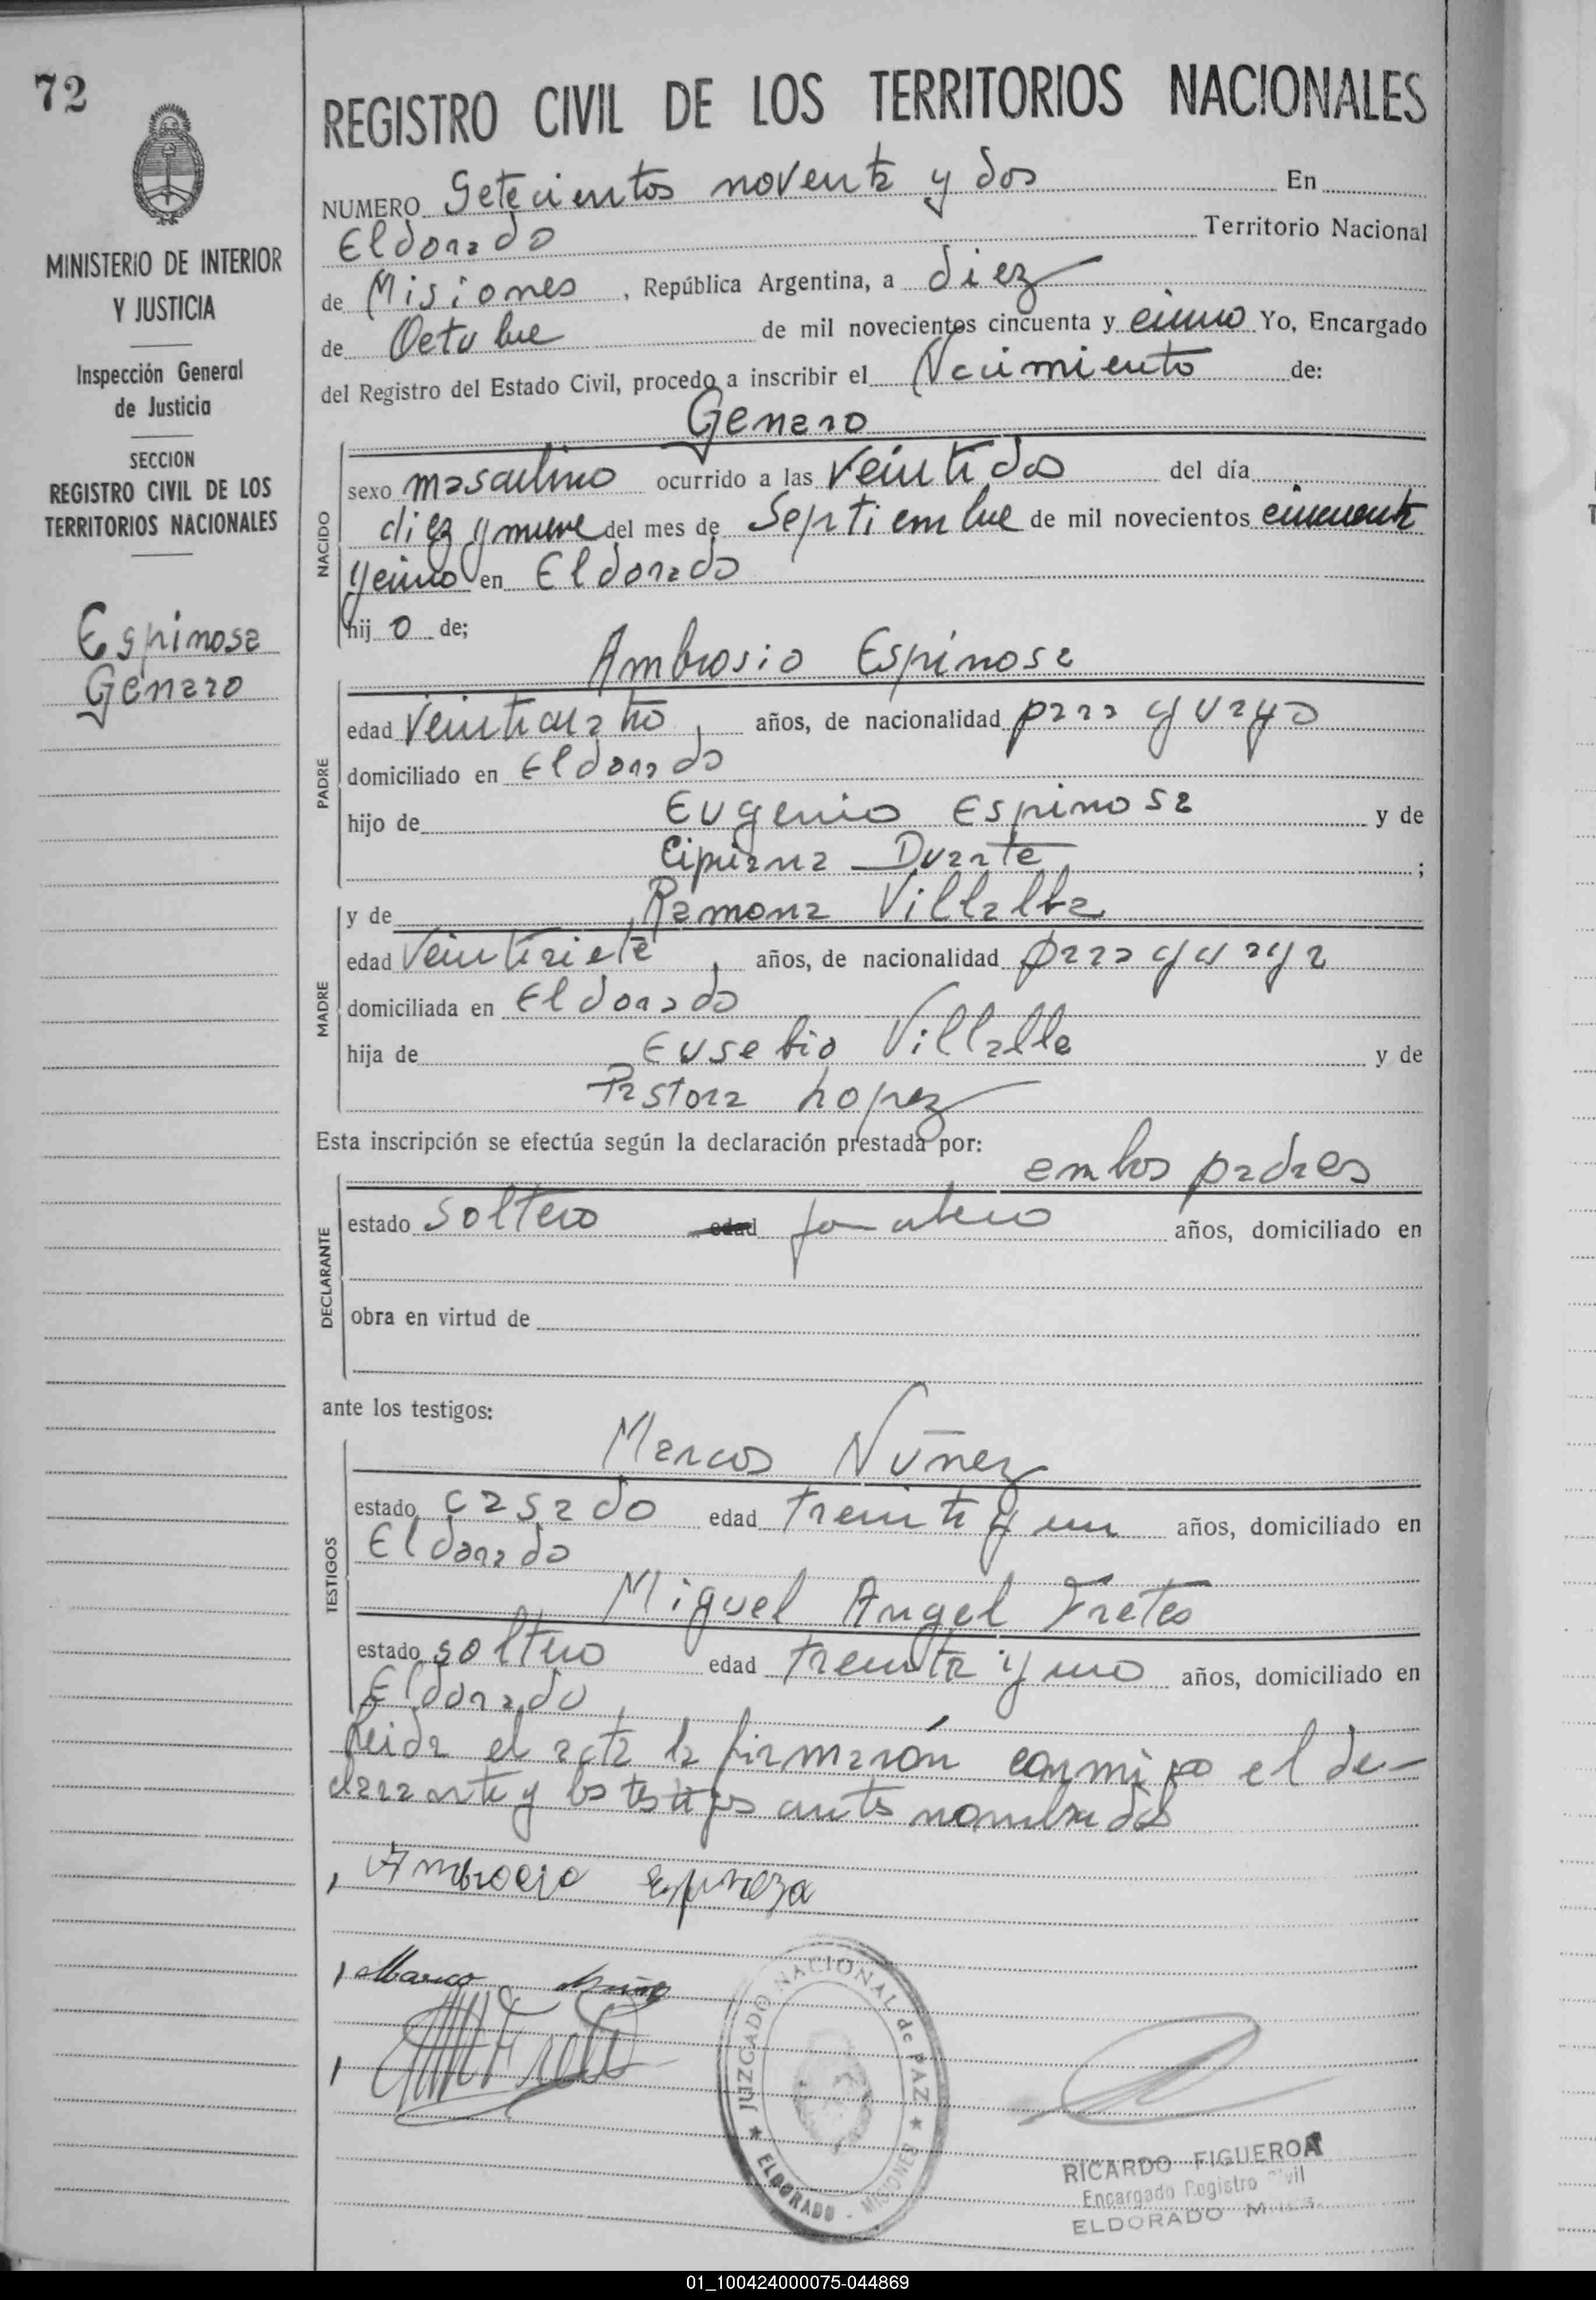 72
MINISTERIO DE INTERIOR
Y JUSTICIA
Inspección General
de Justicia
SECCION
REGISTRO CIVIL DE LOS
TERRITORIOS NACIONALES
Espinosa
Genaro
REGISTRO CIVIL DE LOS TERRITORIOS NACIONALES
NUMERO Setecientos noventa y dos En
Eldorado Territorio Nacional
de Misiones, República Argentina, a diez
de Octubre de mil novecientos cincuenta y cinco Yo, Encargado
del Registro del Estado Civil, procedo a inscribir el Nacimiento de:
Genaro
NACIDO
sexo masculino ocurrido a las veintidos del día
diez y nueve del mes de Septiembre de mil novecientos cincuenta
y cinco en Eldorado
hijo de;
Ambrosio Espinosa
PADRE
edad veinticuatro, años, de nacionalidad paraguayo
domiciliado en Eldorado
hijo de Eugenio Espinosa y de
Cipriana Duarte;
y de Ramona Villalba
MADRE
edad veintisiete, años, de nacionalidad paraguaya
domiciliada en Eldorado
hija de Eusebio Villalba y de
Pastora Lopez
Esta inscripción se efectúa según la declaración prestada por:
ambos padres
DECLARANTE
estado soltero edad jornalero años, domiciliado en
obra en virtud de
ante los testigos:
Marcos Núñez
TESTIGOS
estado casado edad treinta y un años, domiciliado en
Eldorado
Miguel Angel Fretes
estado soltero edad treinta y uno años, domiciliado en
Eldorado
Leida el acta la firmarón conmigo el de-
clarante y los testigos antes nombrados
Ambrocio Espinoza
Marco Nuñe
Frete
JUZGADO NACIONAL de PAZ
ELDORADO - MISIONES
RICARDO FIGUEROA
Encargado Registro Civil
ELDORADO
01_100424000075-044869